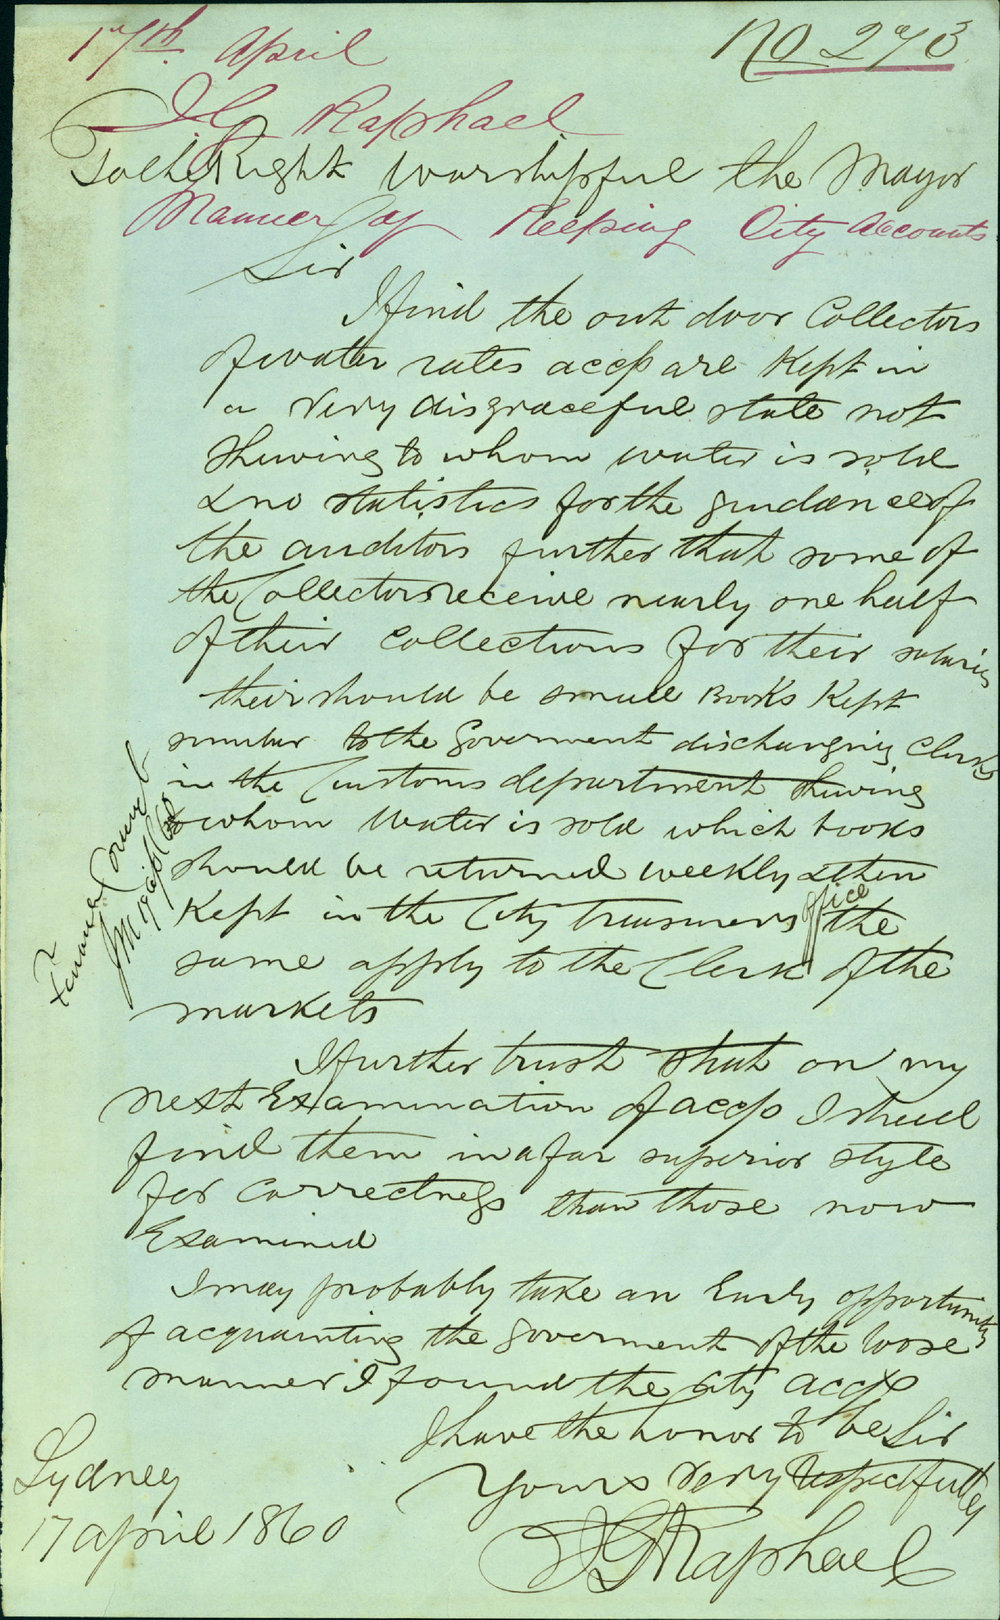 17th April
No 273
J G Raphael
To the Right Worshipful the Mayor
Manner of Keeping City Accounts
Sir
I find the out door Collectors
of water rates accts are Kept in
a very disgraceful state not
shewing to whom water is sold
& no statistics for the guidance of
the auditors further that some of
the Collectors receive nearly one half
of their Collections for their salaries
their should be small Books Kept
similar to the Goverment discharging Clerks
in the Customs department shewing
to whom Water is sold which books
should be returned weekly & then
Kept in the City treasurers office the
same apply to the Clerk of the
markets
I further trust that on my
next Examination of accts I shall
find them in a far superior style
for correctness than those now
Examined
I may probably take an Early opportunity
of acquainting the goverment of the loose
manner I found the City accts
I have the honor to be Sir
Yours very respectfully
J G Raphael
Sydney
17 april 1860
Finance Council
JM 17 April /60